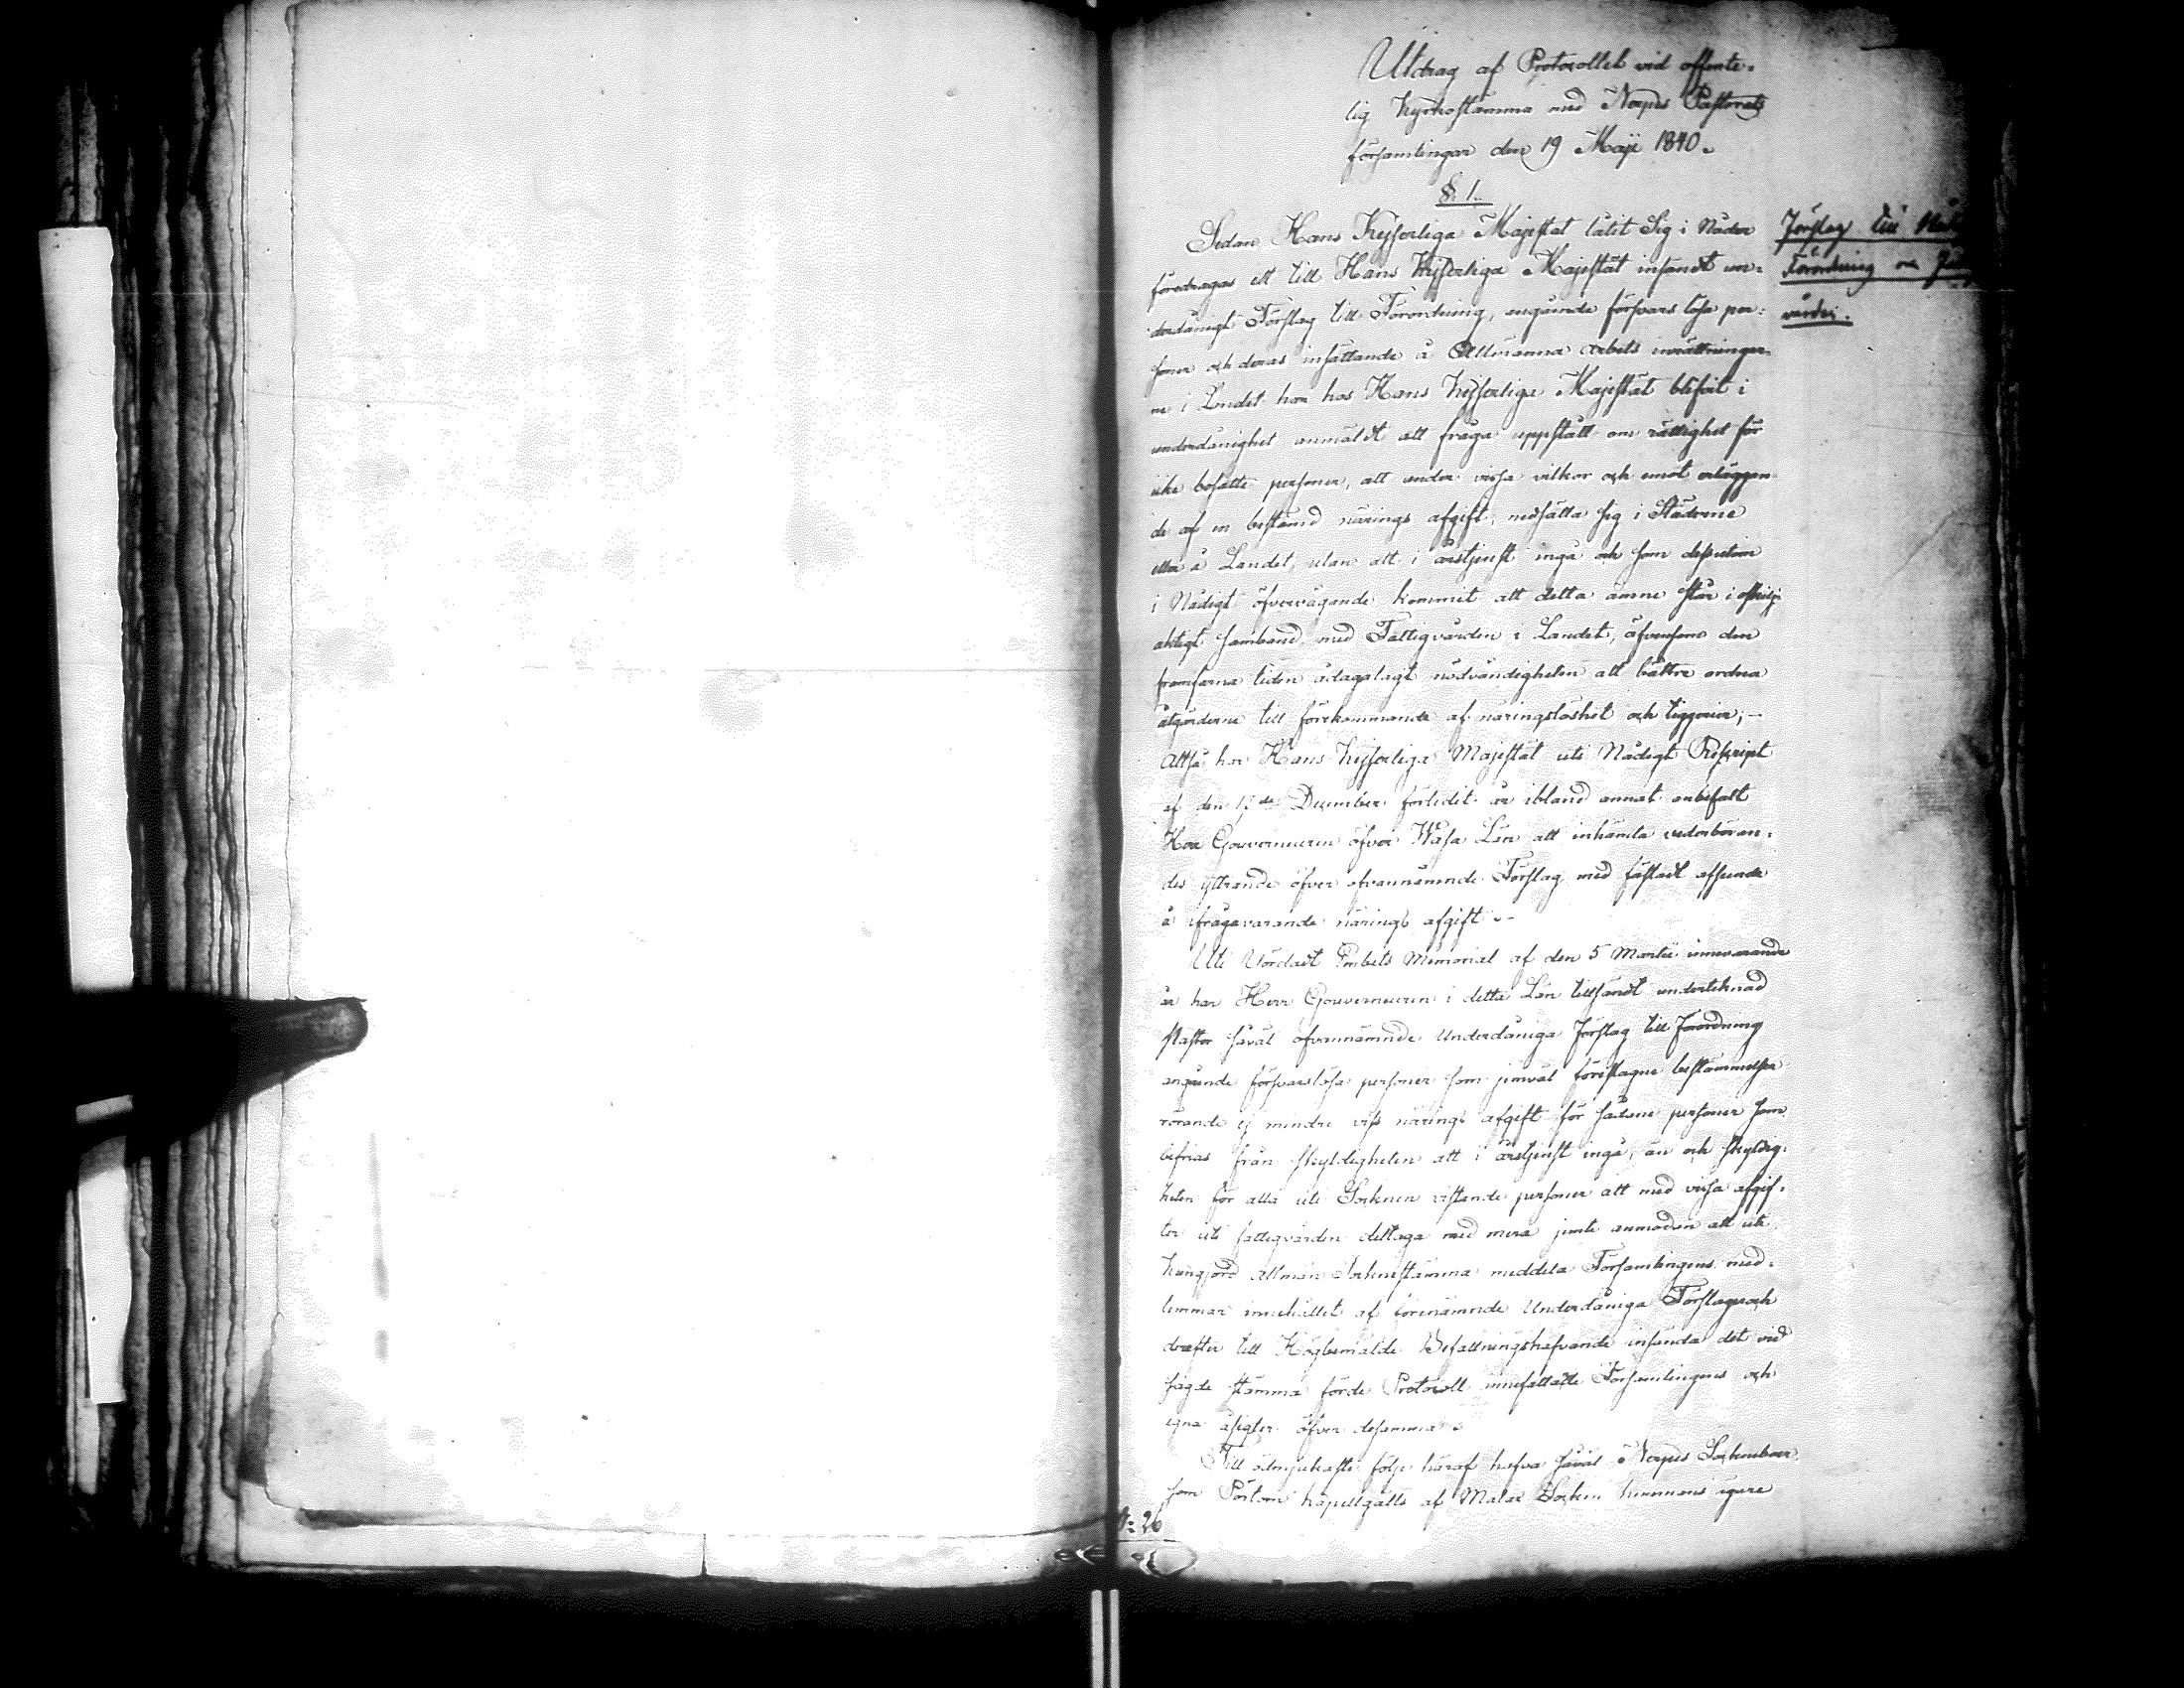 Utdrag af Protocollet vid offente-
lig Kyrkostämma med Nerpes Pastorats
församlingar den 19 Maji 1840.
§. 1.
Sedan Hans Kejserliga Majestät låtit Sig i Nåder
föredragas ett till Hans Kejserliga Majestät insändt un-
derdånigt Förslag till Förordning, angående försvarslösa per-
soner och deras insättande å Allmänna arbets inrättningar
ne i Landet har hos Hans Kejserliga Majestät blifvit i
underdånighet anmäldt att fråga uppstått om rättighet för
icke besatte personer, att under vissa vilkor och emot erläggan-
de af en bestämd närings afgift, nedsätta sig i Städerne
eller å Landet, utan att i årstjenst ingå och som dessutom
i Nådigt öfvervägande kommit att detta ämne står i
aktigt samband med Fattigvården i Landet, äfvensom den
framfarna tiden ådagalagt nödvändigheten att bättre ordna
åtgärderne till förekommande af näringslöshet och tiggerier; –
Altså har Hans Kejserliga Majestät uti Nådigt Reskript
af den December förledit år ibland annat anbefalt
Herr Gouverneuren öfver Wasa Län att inhämta vederböran-
des yttrande öfver ofvannämnde Förslag med fästadt afseende
å ifrågavarande närings afgift. -
Uti Vördadt Embets Memorial af den 5 Martii innevarande
år har Herr Gouverneuren i detta Län tillsändt undertecknad
Pastor såväl ofvannämnde Underdåniga Förslag till Förordning
angående försvarslösa personer som jemväl föreslagne bestämmelser
rörande ej mindre viss närings afgift för sådane personer som
befrias från skyldigheten att i årstjenst ingå, än och skyldig-
heten för alla uti Socknen vistande personer att med vissa afgif-
ter uti fattigvården deltaga med mera jemte anmodan att uti
kungjord allmän Sockenstämma meddela Församlingens med-
lemmar innehållet af förenämnde Underdåniga Förslager och
derefter till Högbemälde Befallningshafvande insända det vid
sagde stämma förde Protocoll innefattande Församlingens och
egna åsigter öfver desamma.
Till ödmjukaste följe häraf hafva såväl Nerpes Sockneboer,
som Pörtom kapellgälls af Malax Socken hemmans ägare
Förslag till
Förordning om
vården.
N: 26